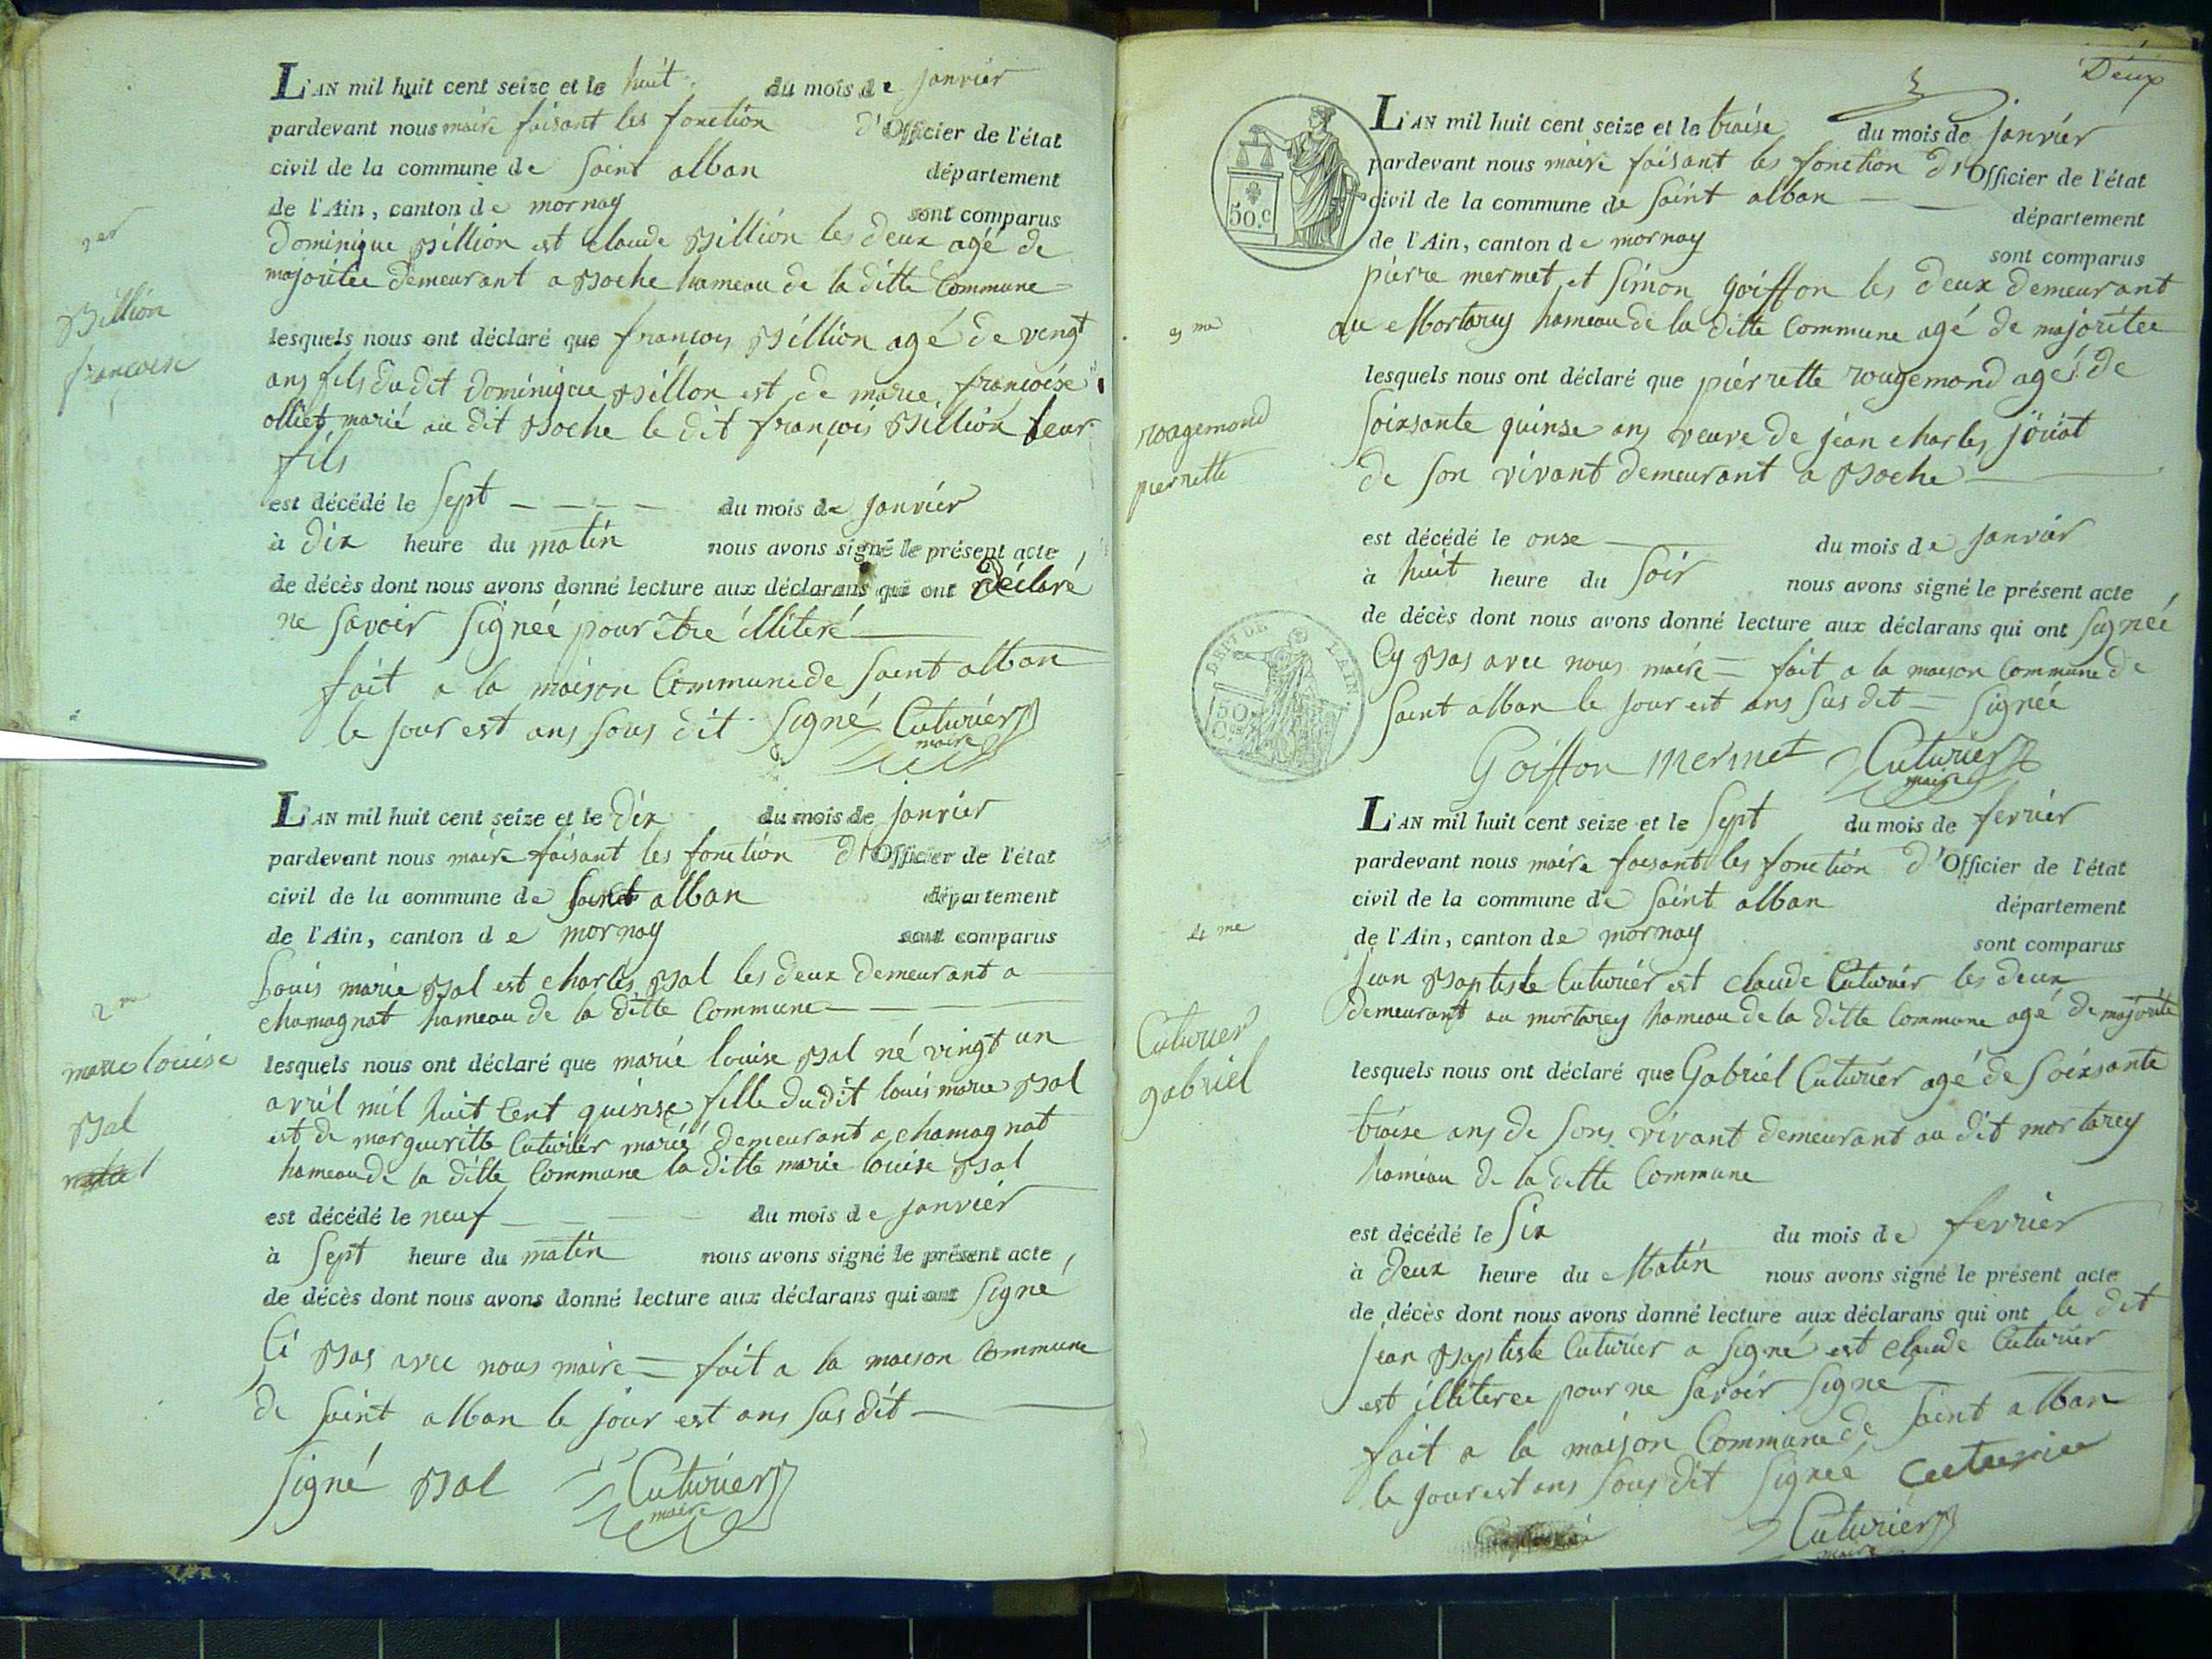 L'AN mil huit cent seize et le huit du mois de janvier
pardevant nous maire faisant les fonction d'Officier de l'état
civil de la commune de Saint alban département
de l'Ain, canton de mornay sont comparus
1er
Dominique Billion est Claude Billion les deux agé de
majoritee demeurant a Boche hameau de la ditte Commune
Billion
francois
lesquels nous ont déclaré que françois Billion agé de vengt
ans fils du dit Dominique Billon est de marie françoise
olliet marié au dit Boche le dit françois Billion leur
fils
est décédé le Sept du mois de janvier
à dix heure du matin nous avons signé le présent acte,
de décès dont nous avons donné lecture aux déclarans qui ont déclaré
ne savoir Signée pour être illiteré
fait a la maison Commune de Saint alban
le jour est ans sous dit Signé Cuturier
maire
L'AN mil huit cent seize et le Dix du mois de janvier
pardevant nous maire faisant les fonction d'Officier de l'état
civil de la commune de Saint alban département
de l'Ain, canton de mornay sont comparus
Louis marie Bal est charles Bal les deux demeurant a
chamagnat hameau de la ditte Commune
2me
marie louise
Bal
lesquels nous ont déclaré que marie louise Bal né vingt un
avril mil huit Cent quinse fille du dit louis marie Bal
est de margueritte Cuturier marié demeurant a chamagnat
hameau de la ditte Commune la ditte marie louise Bal
est décédé le neuf du mois de janvier
à Sept heure du matin nous avons signé le présent acte,
de décès dont nous avons donné lecture aux déclarans qui ont Signé
Ci Bas avec nous maire = fait a la maison Commune
de Saint alban le jour est ans sus dit
Signé Bal Cuturier
maire
Deux
L'AN mil huit cent seize et le traise du mois de janvier
pardevant nous maire faisant les fonction d'Officier de l'état
civil de la commune de Saint alban département
de l'Ain, canton de mornay sont comparus
50.c
pierre mermet et Simon goiffon les deux demeurant
au Mortarey hameau de la ditte Commune agé de majoritee
3me
rougemond
pierrette
lesquels nous ont déclaré que pierrette rougemond agés de
soixsante quinse ans veuve de jean charles joüat
de son vivant demeurant a Boche
est décédé le onse du mois de janvier
à huit heure du Soir nous avons signé le présent acte,
de décès dont nous avons donné lecture aux déclarans qui ont Signée
Cy Bas avec nous maire = fait a la maison Commune de
Saint alban le jour est ans sus dit = Signée
DEPT DE L'AIN
50
Goiffon mermet Cuturier
maire
L'AN mil huit cent seize et le Sept du mois de fevrier
pardevant nous maire faisant les fonction d'Officier de l'état
civil de la commune de Saint alban département
de l'Ain, canton de mornay sont comparus
4me
Jean Baptiste Cuturier est Claude Cuturier les deux
demeurant au mortarey hameau de la ditte Commune agé de majorité
Cuturier
gabriel
lesquels nous ont déclaré que Gabriel Cuturier agé de Soixsante
traise ans de sons vivant demeurant au dit mortarey
hameau de la ditte Commune
est décédé le Six du mois de fevrier
à deux heure du Matin nous avons signé le présent acte
de décès dont nous avons donné lecture aux déclarans qui ont le dit
Jean Baptiste Cuturier a Signé est Claude Cuturier
est illiteree pour ne savoir Signé
fait a la maison Commune de Saint alban
le jour est ans sous dit Signee Cuturier
Cuturier
maire